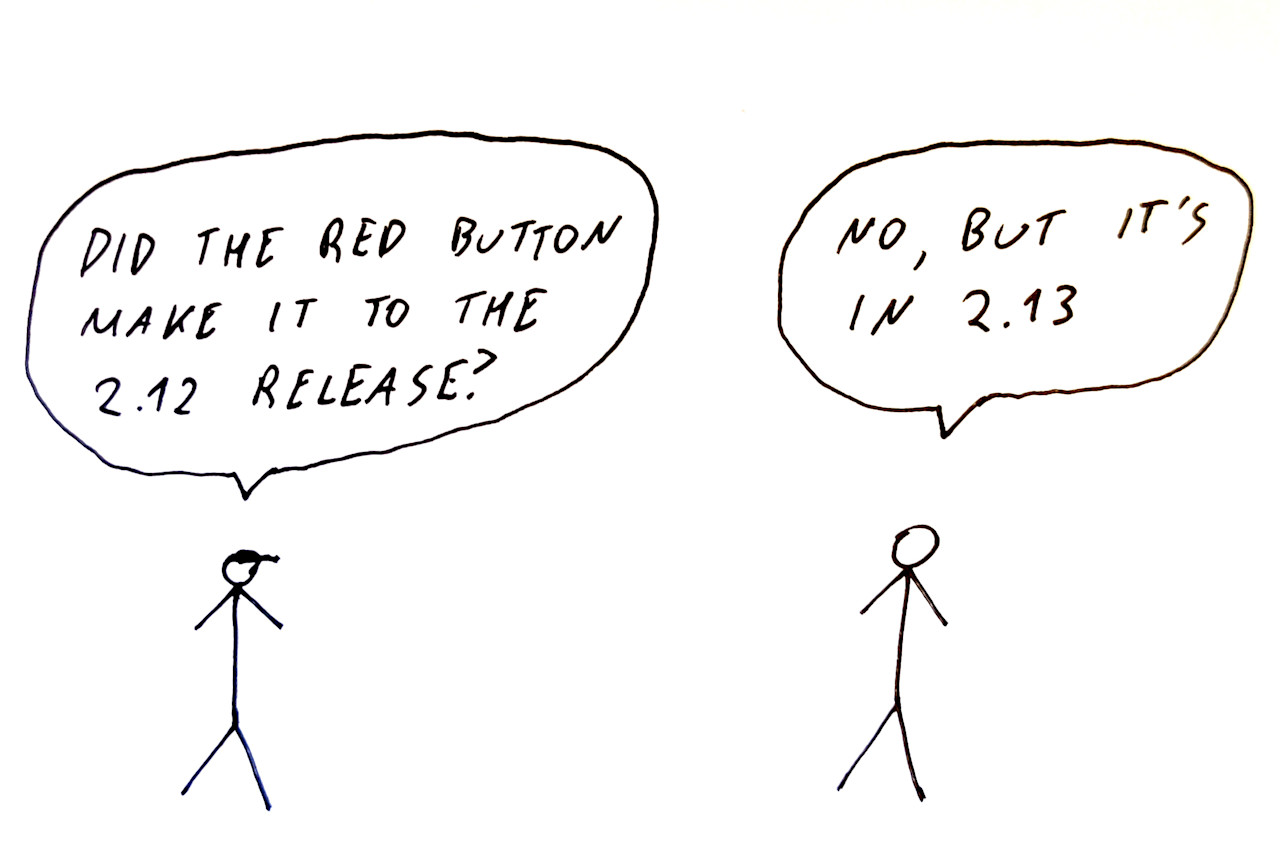 DID THE RED BUTTON
MAKE IT TO THE
2.12 RELEASE?
NO, BUT IT'S
IN 2.13